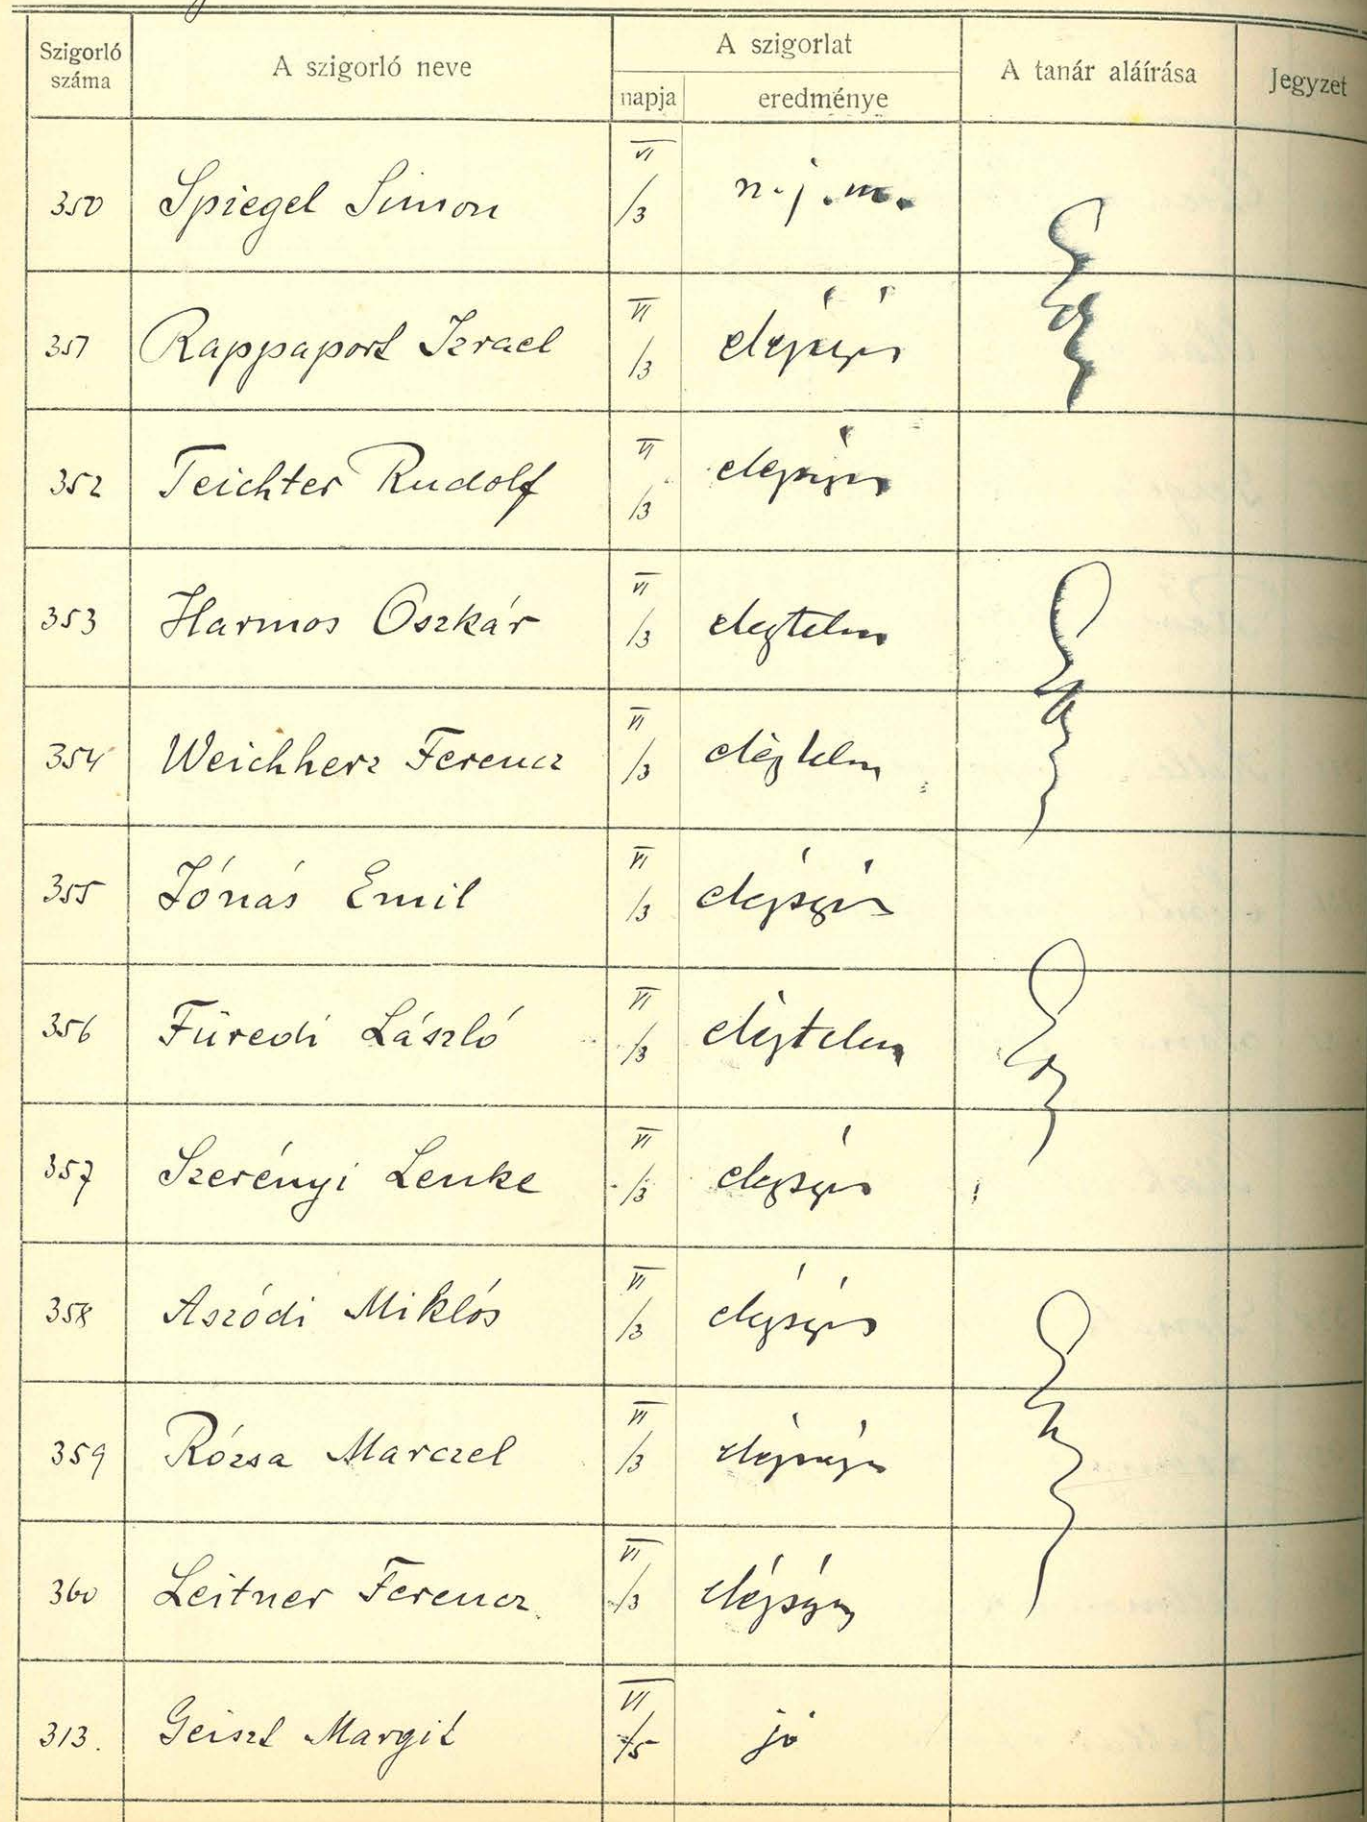 Szigorló száma A szigorló neve A szigorlat napja eredménye A tanár aláírása Jegyzet
350 Spiegel Simon VI/3 n. j. m.
351 Rappaport Izrael VI/3 elégséges
352 Teichter Rudolf VI/3 elégséges
353 Harmos Oszkár VI/3 elegtelen
354 Weichherz Ferencz VI/3 elégtelen
355 Jónás Emil VI/3 elégséges
356 Füredi László VI/3 elégtelen
357 Szerényi Lenke VI/3 elegséges
358 Aszódi Miklós VI/3 elégséges
359 Rózsa Marczel VI/3 elégséges
360 Leitner Ferencz VI/3 elégséges
313. Geiszt Margit VI/5 jó